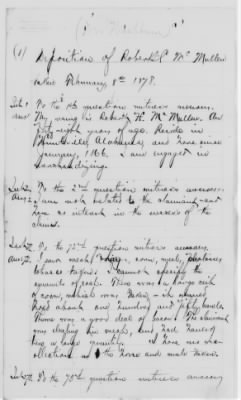 (1) Deposition of Robert H. Mc Mullen
taken February 8th 1878.
Int. 1 To the 1st question witness answers.
My name is Robert H. Mc Mullen. Am
fifty eight years of age. Reside in
Huntsville Alabama, and have since
January, 1866. I am engaged in
merchandizing.
Int. 2 To the 2nd question witness answers:
I am not related to the claimant and
have no interest in the success of the
claim.
To the 72nd question witness answers,
I saw meat, corn, meal, potatoes
tobacco taken. I cannot specify the
amounts of each. There was a large
of corn, which was taken
about one hundred and fifty
There was a good deal of bacon. The claimant
was his meat, and had
a large quantity. I have no
recollection of the horse and mule taken.
To the 75th question witness answers